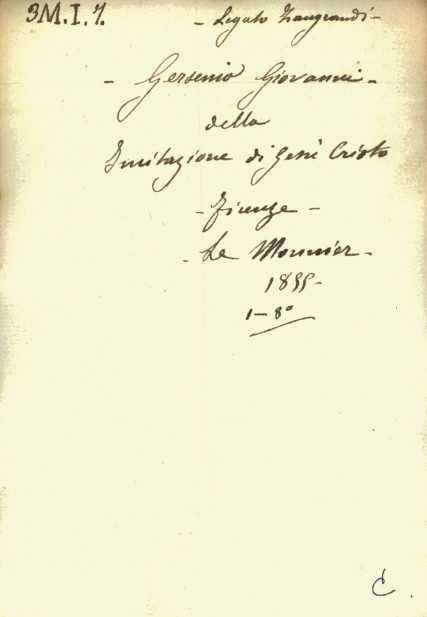 3M.I.7.
- Legato Zangrandi -
- Gersenio Giovanni -
della
Imitazione di Gesù Cristo
- Firenze -
- Le Monnier -
1855 -
1 - 8°
C